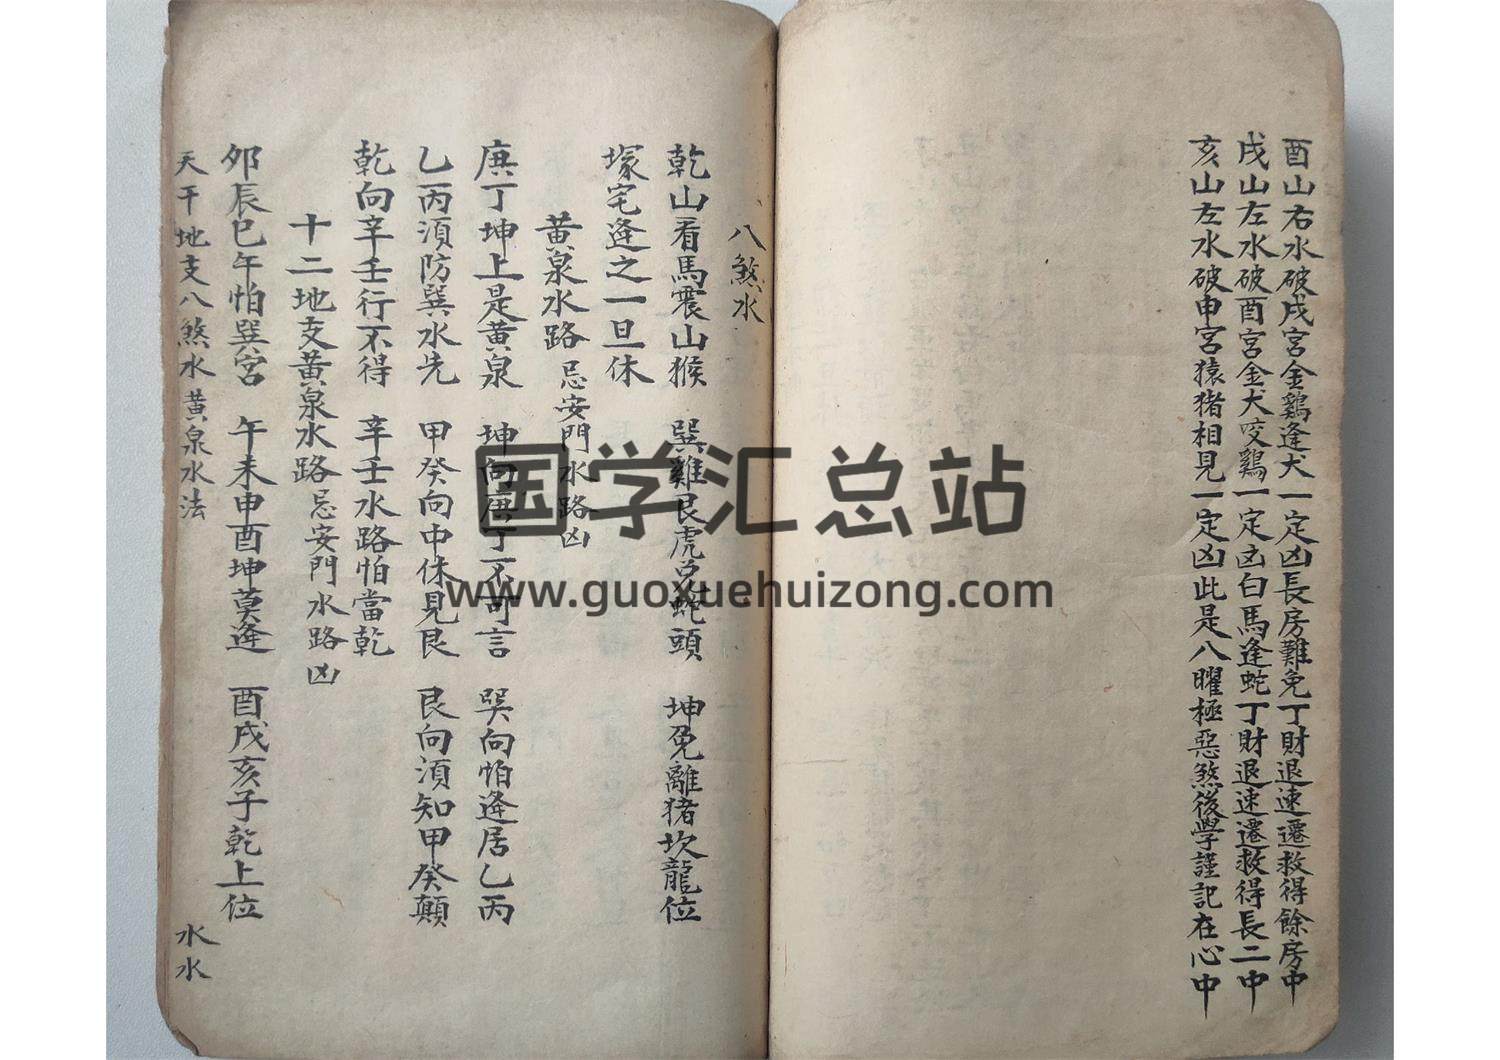 酉山右水破戌宮金鷄逢犬一定凶長房難免丁財退速遷救得餘房中
戌山左水破酉宮金犬咬鷄一定凶白馬逢蛇丁財退速遷救得長二中
亥山左水破申宮猿猪相見一定凶此是八曜極惡煞後學謹記在心中
八煞水
乾山看馬震山猴 巽雞艮虎兌蛇頭 坤免離猪坎龍位
塚宅逢之一旦休
黄泉水路 忌安門水路凶
庚丁坤上是黄泉 坤向庚丁不可言 巽向怕逢居乙丙
乙丙須防巽水先 甲癸向中休見艮 艮向須知甲癸顛
乾向辛壬行不得 辛壬水路怕當乾
十二地支黄泉水路 忌安門水路凶
卯辰巳午怕巽宮 午未申酉坤莫逢 酉戌亥子乾上位
天干地支八煞水黄泉水法 水水
国学汇总站
www.guoxuehuizong.com